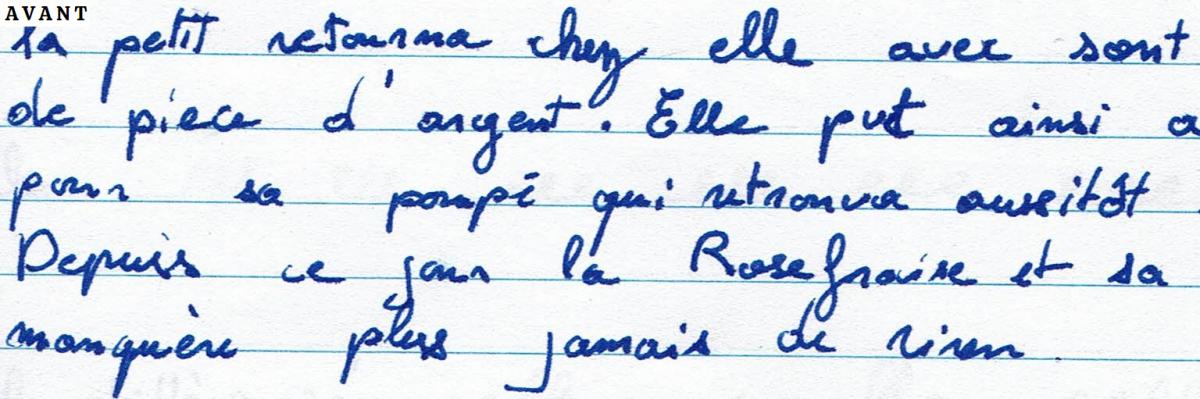 AVANT
la petit retourna chez elle avec sont
de pièce d'argent. Elle put ainsi a
pour sa poupé qui retrouva aussitôt
Depuis ce jour la Rose fraise et sa
manquère plus jamais de rien